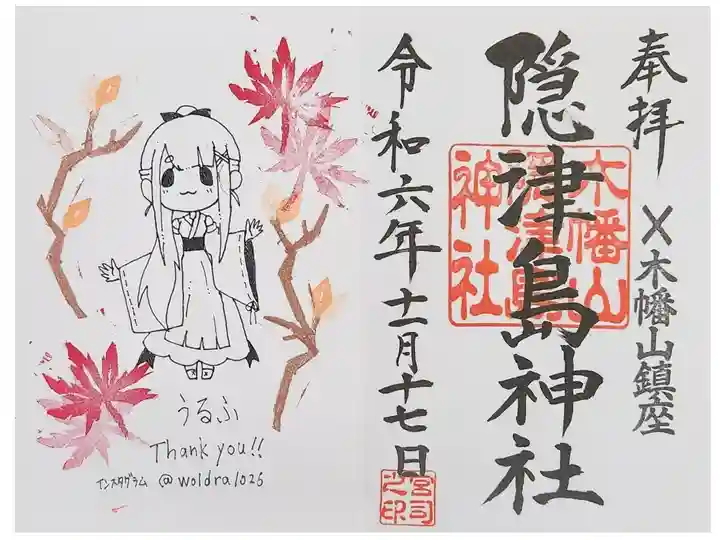 奉拝
X木幡山鎮座
隠津島神社
木幡山
隠津島
神社
令和六年十一月十七日
宮司
之印
うるふ
Thank you!!
インスタグラム @woldra1025